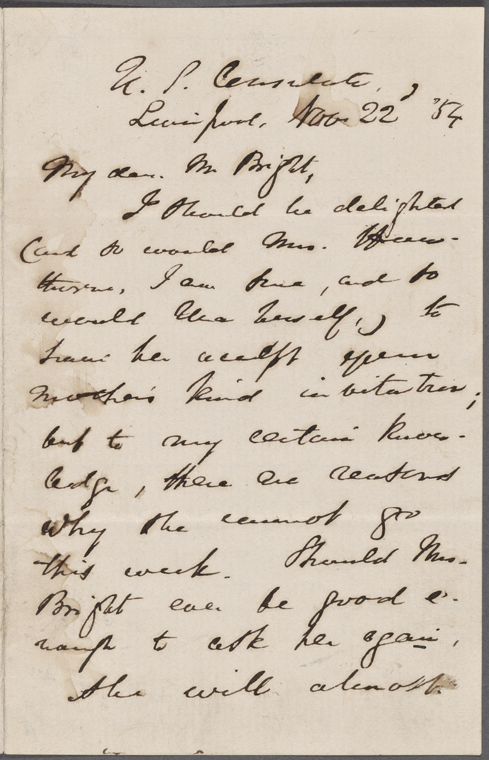 U. S. Consulate,
Liverpool, Nov. 22d '54
My dear Mr Bright,
I should be delighted
(and so would Mrs. Haw-
thorne, I am sure, and so
would Una herself,) to
have her accept your
mother's kind invitation;
but to my certain know-
ledge, there are reasons
why she cannot go
this week. Should Mrs.
Bright ever be good e-
nough to ask her again,
she will almost